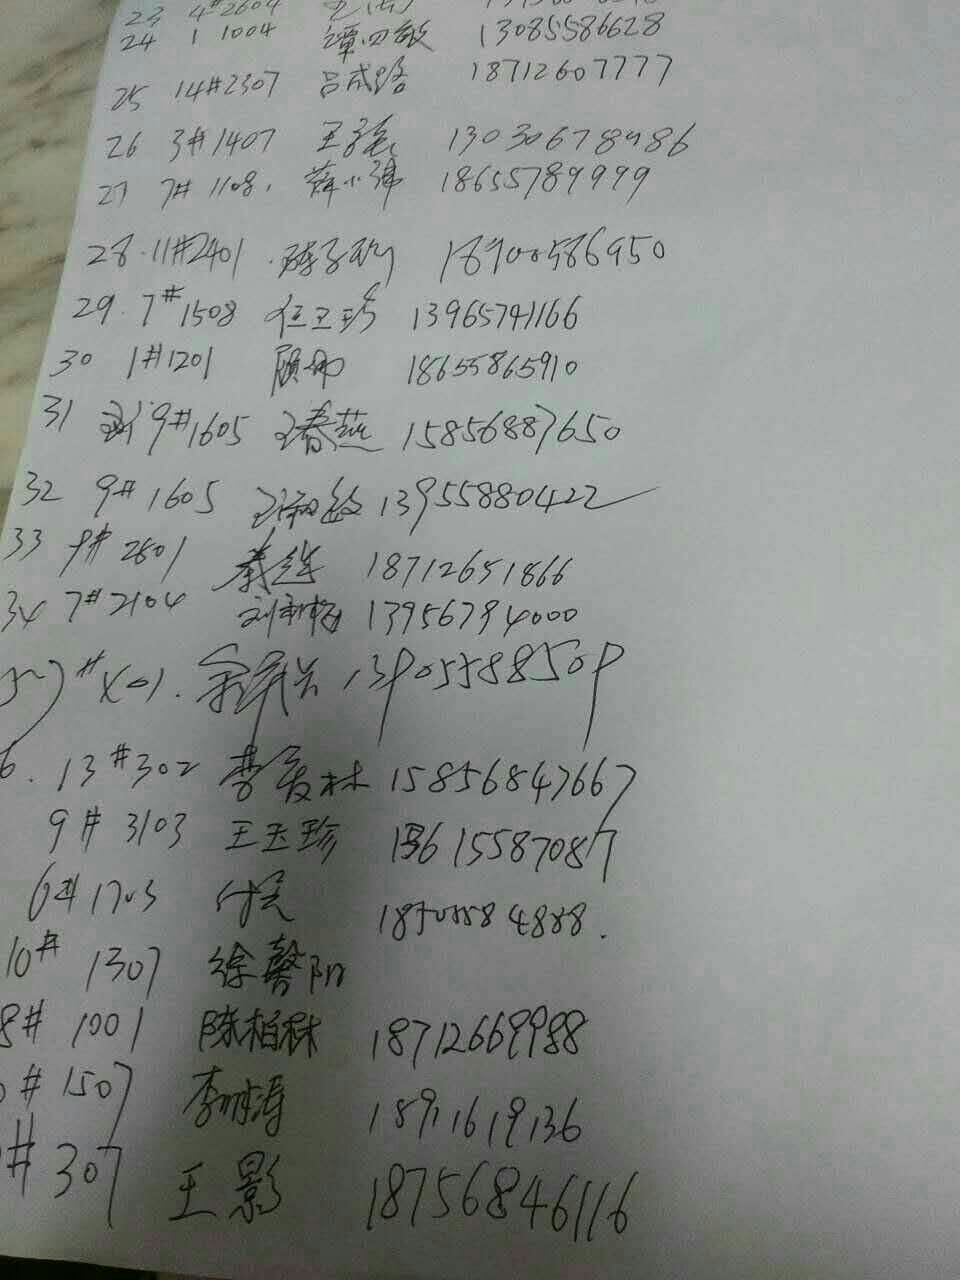 23 4#2604
24 1 1004 谭四敏 13085586628
25 14#2307 吕成路 18712607777
26 3#1407 王 13030678986
27 7#1108. 薛小沸 18655789999
28. 11#2401. 陈子 18900586950
29. 7#1508 任卫珍 13965741166
30 1#1201 顾娜 18655865910
31 9#1605 王春燕 15856887650
32 9#1605 王淑敏 13955880422
33 9#2801 18712651866
34 7#2104 刘 13956794000
#201. 13905588509
6. 13#302 曹友林 15856847667
9#3103 王玉珍 13615587087
6#1703 付 4888.
10# 1307 徐馨阳
8# 1001 陈柏林 18712669988
#1507 李晓涛 18911619136
#307 王影 18756846116